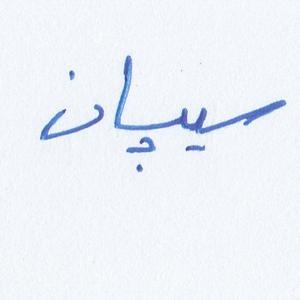 سیبان